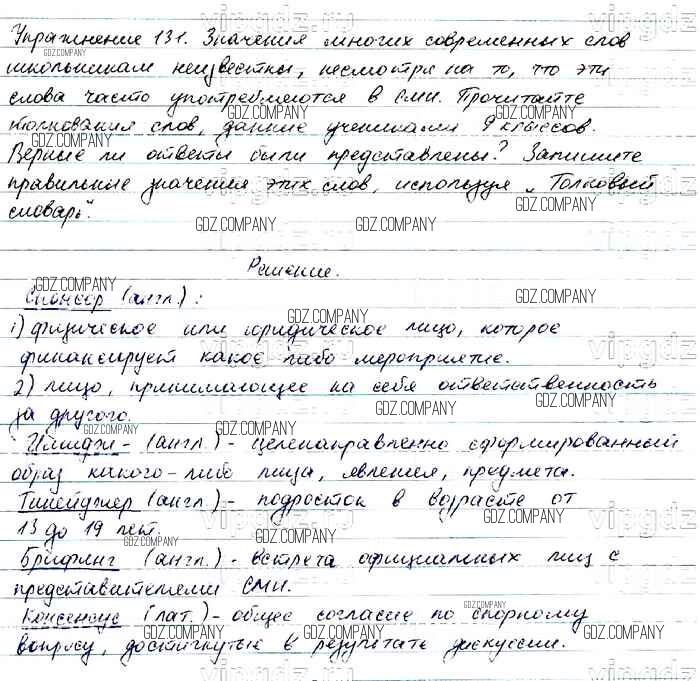 Упражнение 131. Значения многих современных слов
школьникам неизвестны, несмотря на то, что эти
слова часто употребляются в СМИ. Прочитайте
толкования слов, данные учениками 9 классов.
Верные ли ответы были представлены? Запишите
правильные значения этих слов, используя „Толковый
словарь“.
Решение.
Спонсор (англ.):
1) физическое или юридическое лицо, которое
финансирует какое-либо мероприятие.
2) лицо, принимающее на себя ответственность
за другого.
Имидж - (англ.) - целенаправленно сформированный
образ какого-либо лица, явления, предмета.
Тинейджер (англ.) - подросток в возрасте от
13 до 19 лет.
Брифинг (англ.) - встреча официальных лиц с
представителями СМИ.
Консенсус (лат.) - общее согласие по спорному
вопросу, достигнутые в результате дискуссии.